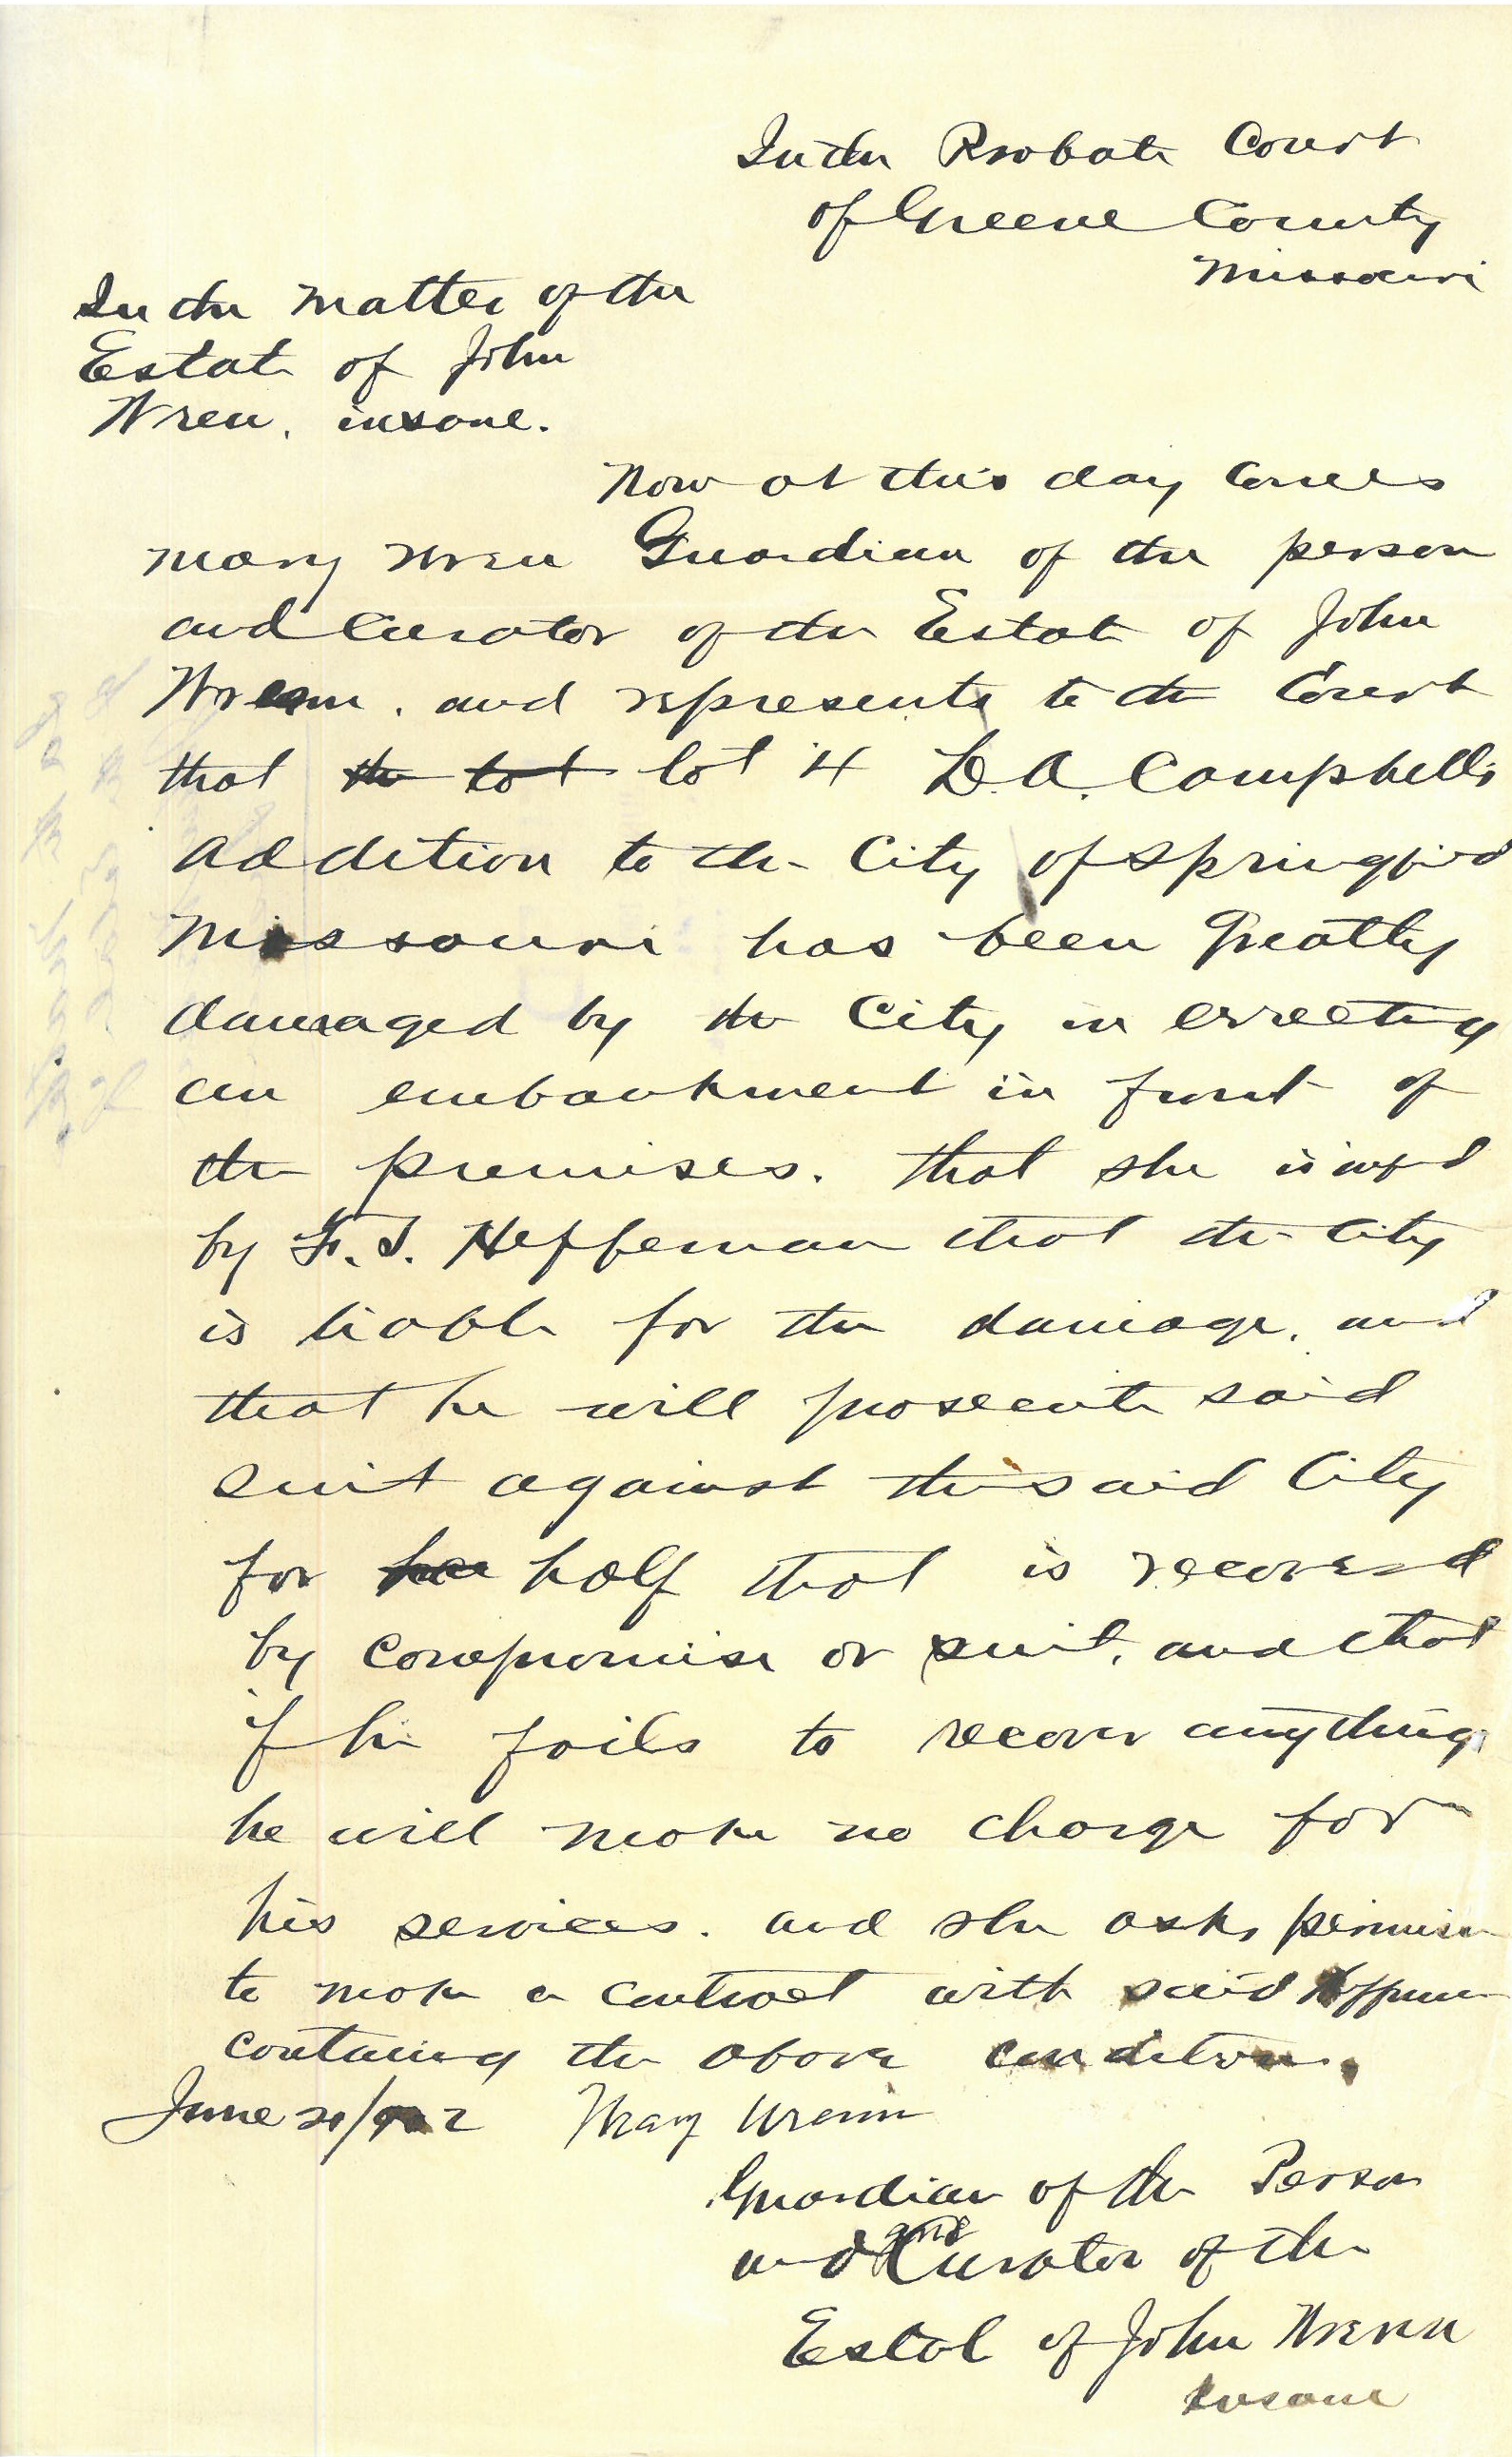 In the Probate Court
of Greene County
Missouri
In the matter of the
Estate of John
Wren, insane.
Now at this day comes
Mary Wren Guardian of the person
and Curator of the Estate of John
Wrenn, and represents to the Court
that the lot lot 4 L. A. Campbells
Addition to the City of Springfield
Missouri has been Greatly
damaged by the City in errecting
an embankment in front of
the premises. that she is infd
by F. S. Heffernan that the City
is liable for the damage, and
that he will prosecute said
Suit against the said City
for half that is recovered
by compromise or suit, and that
if he fails to recover anything
he will make no charge for
his services. and she asks permission
to make a contract with said Heffernan
containing the above conditions.
June 20/902 Mary Wrenn
Guardian of the Person
and Curator of the
Estate of John Wrenn
Insane